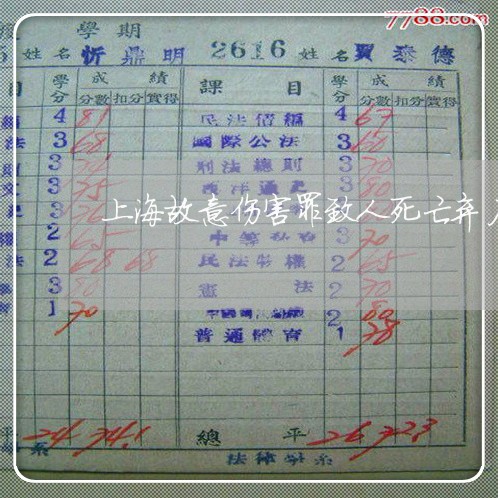 7788.com
學期
5 姓名 忻鼎明 2616 姓名 賈泰德
目 學分 成績 分數 扣分 實得 課目 學分 成績 分數 扣分 實得
4 81 民法債編 4 67
法 3 68 國際公法 3 60
3 刑法總則 3 70
文 3 75 西洋通史 3 80
3
2 65 3 70
法 2 68 68 民法物權 2 65
3 80 憲法 2 70
1 70 2 80
普通體育 1 78
上海故意伤害罪致人死亡弃
平 24 74.1 總平 26 72.3
系 法律學系